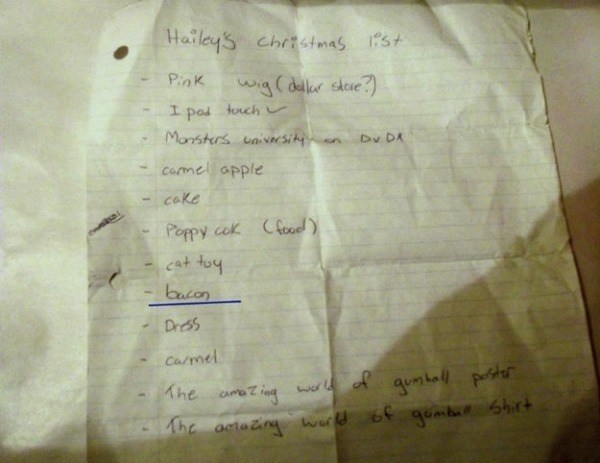 Hailey's christmas list
- Pink wig (dollar store?)
- I pod touch ✓
- Monsters university on DVD
- carmel apple
- cake
- Poppy cak (food)
- cat toy
- bacon
- Dress
- carmel
- The amazing world of gumball poster
- The amazing world of gumball Shirt